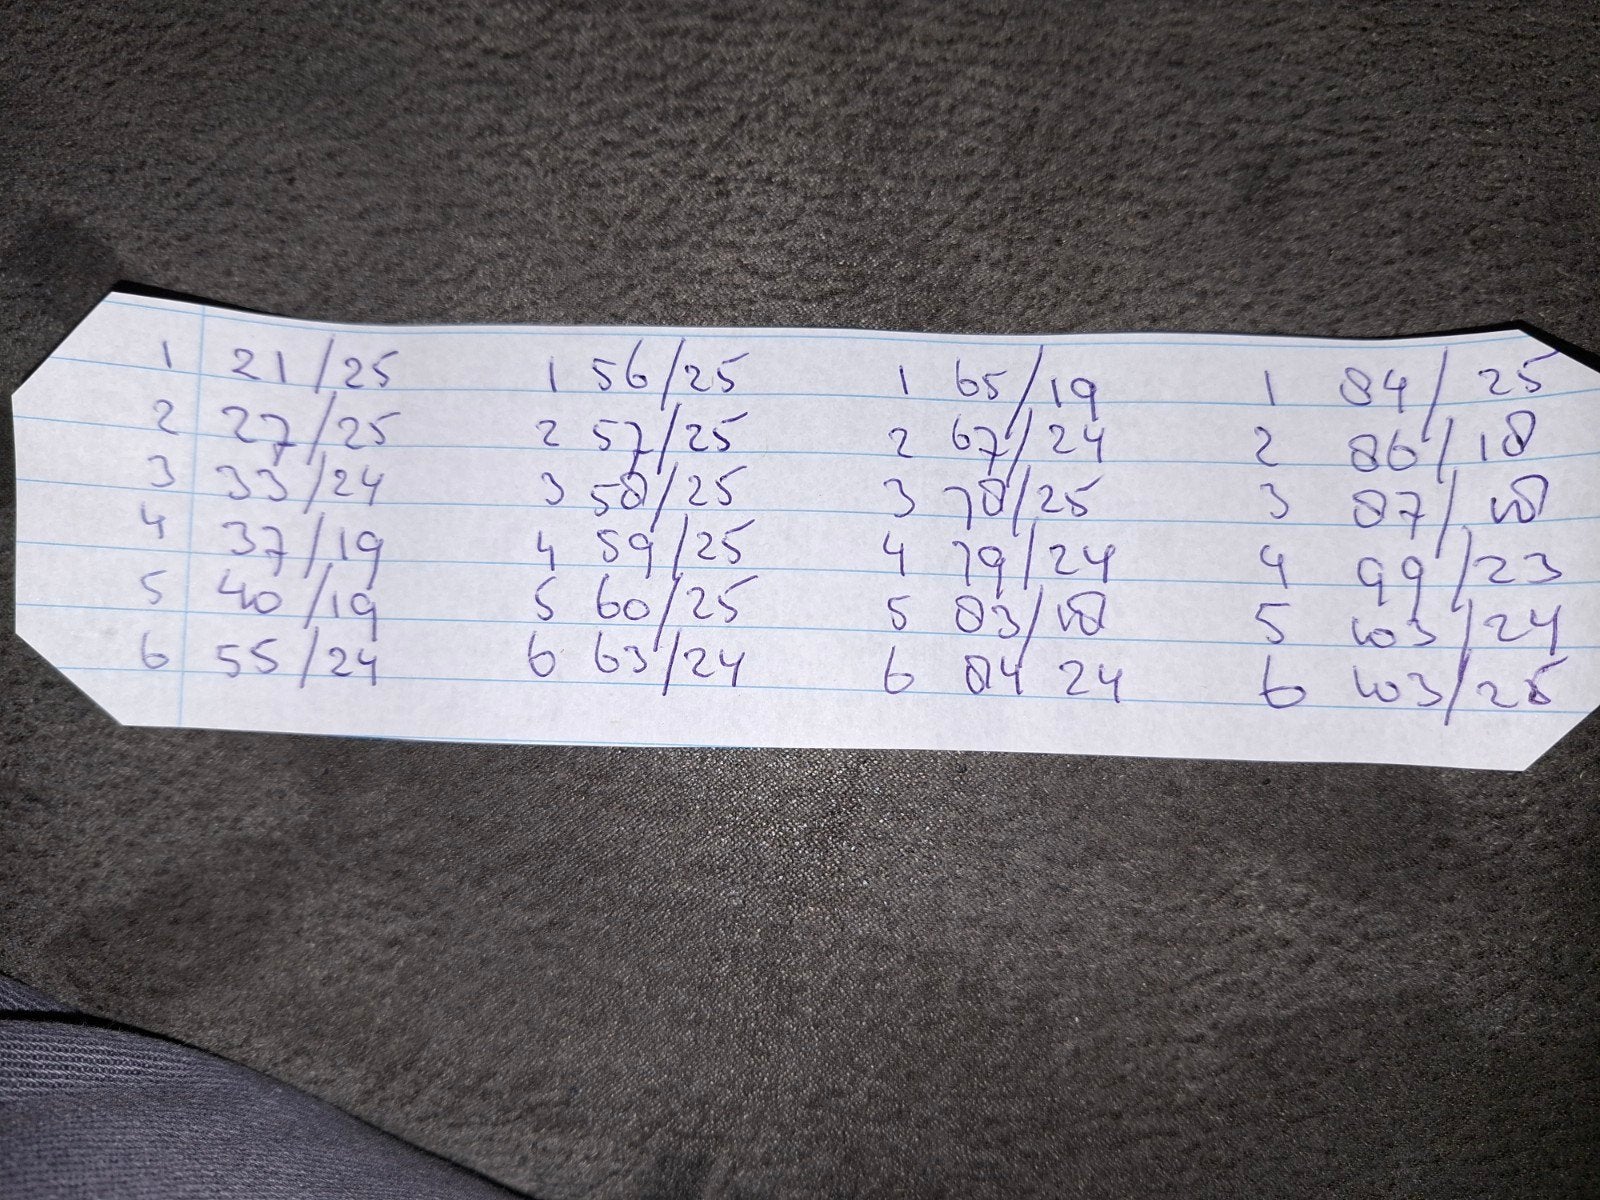 1 21/25 1 56/25 1 65/19 1 84/25
2 27/25 2 57/25 2 67/24 2 86/18
3 33/24 3 58/25 3 78/25 3 87/18
4 37/19 4 59/25 4 79/24 4 99/23
5 40/19 5 60/25 5 83/18 5 103/24
6 55/24 6 63/24 6 84 24 6 103/25